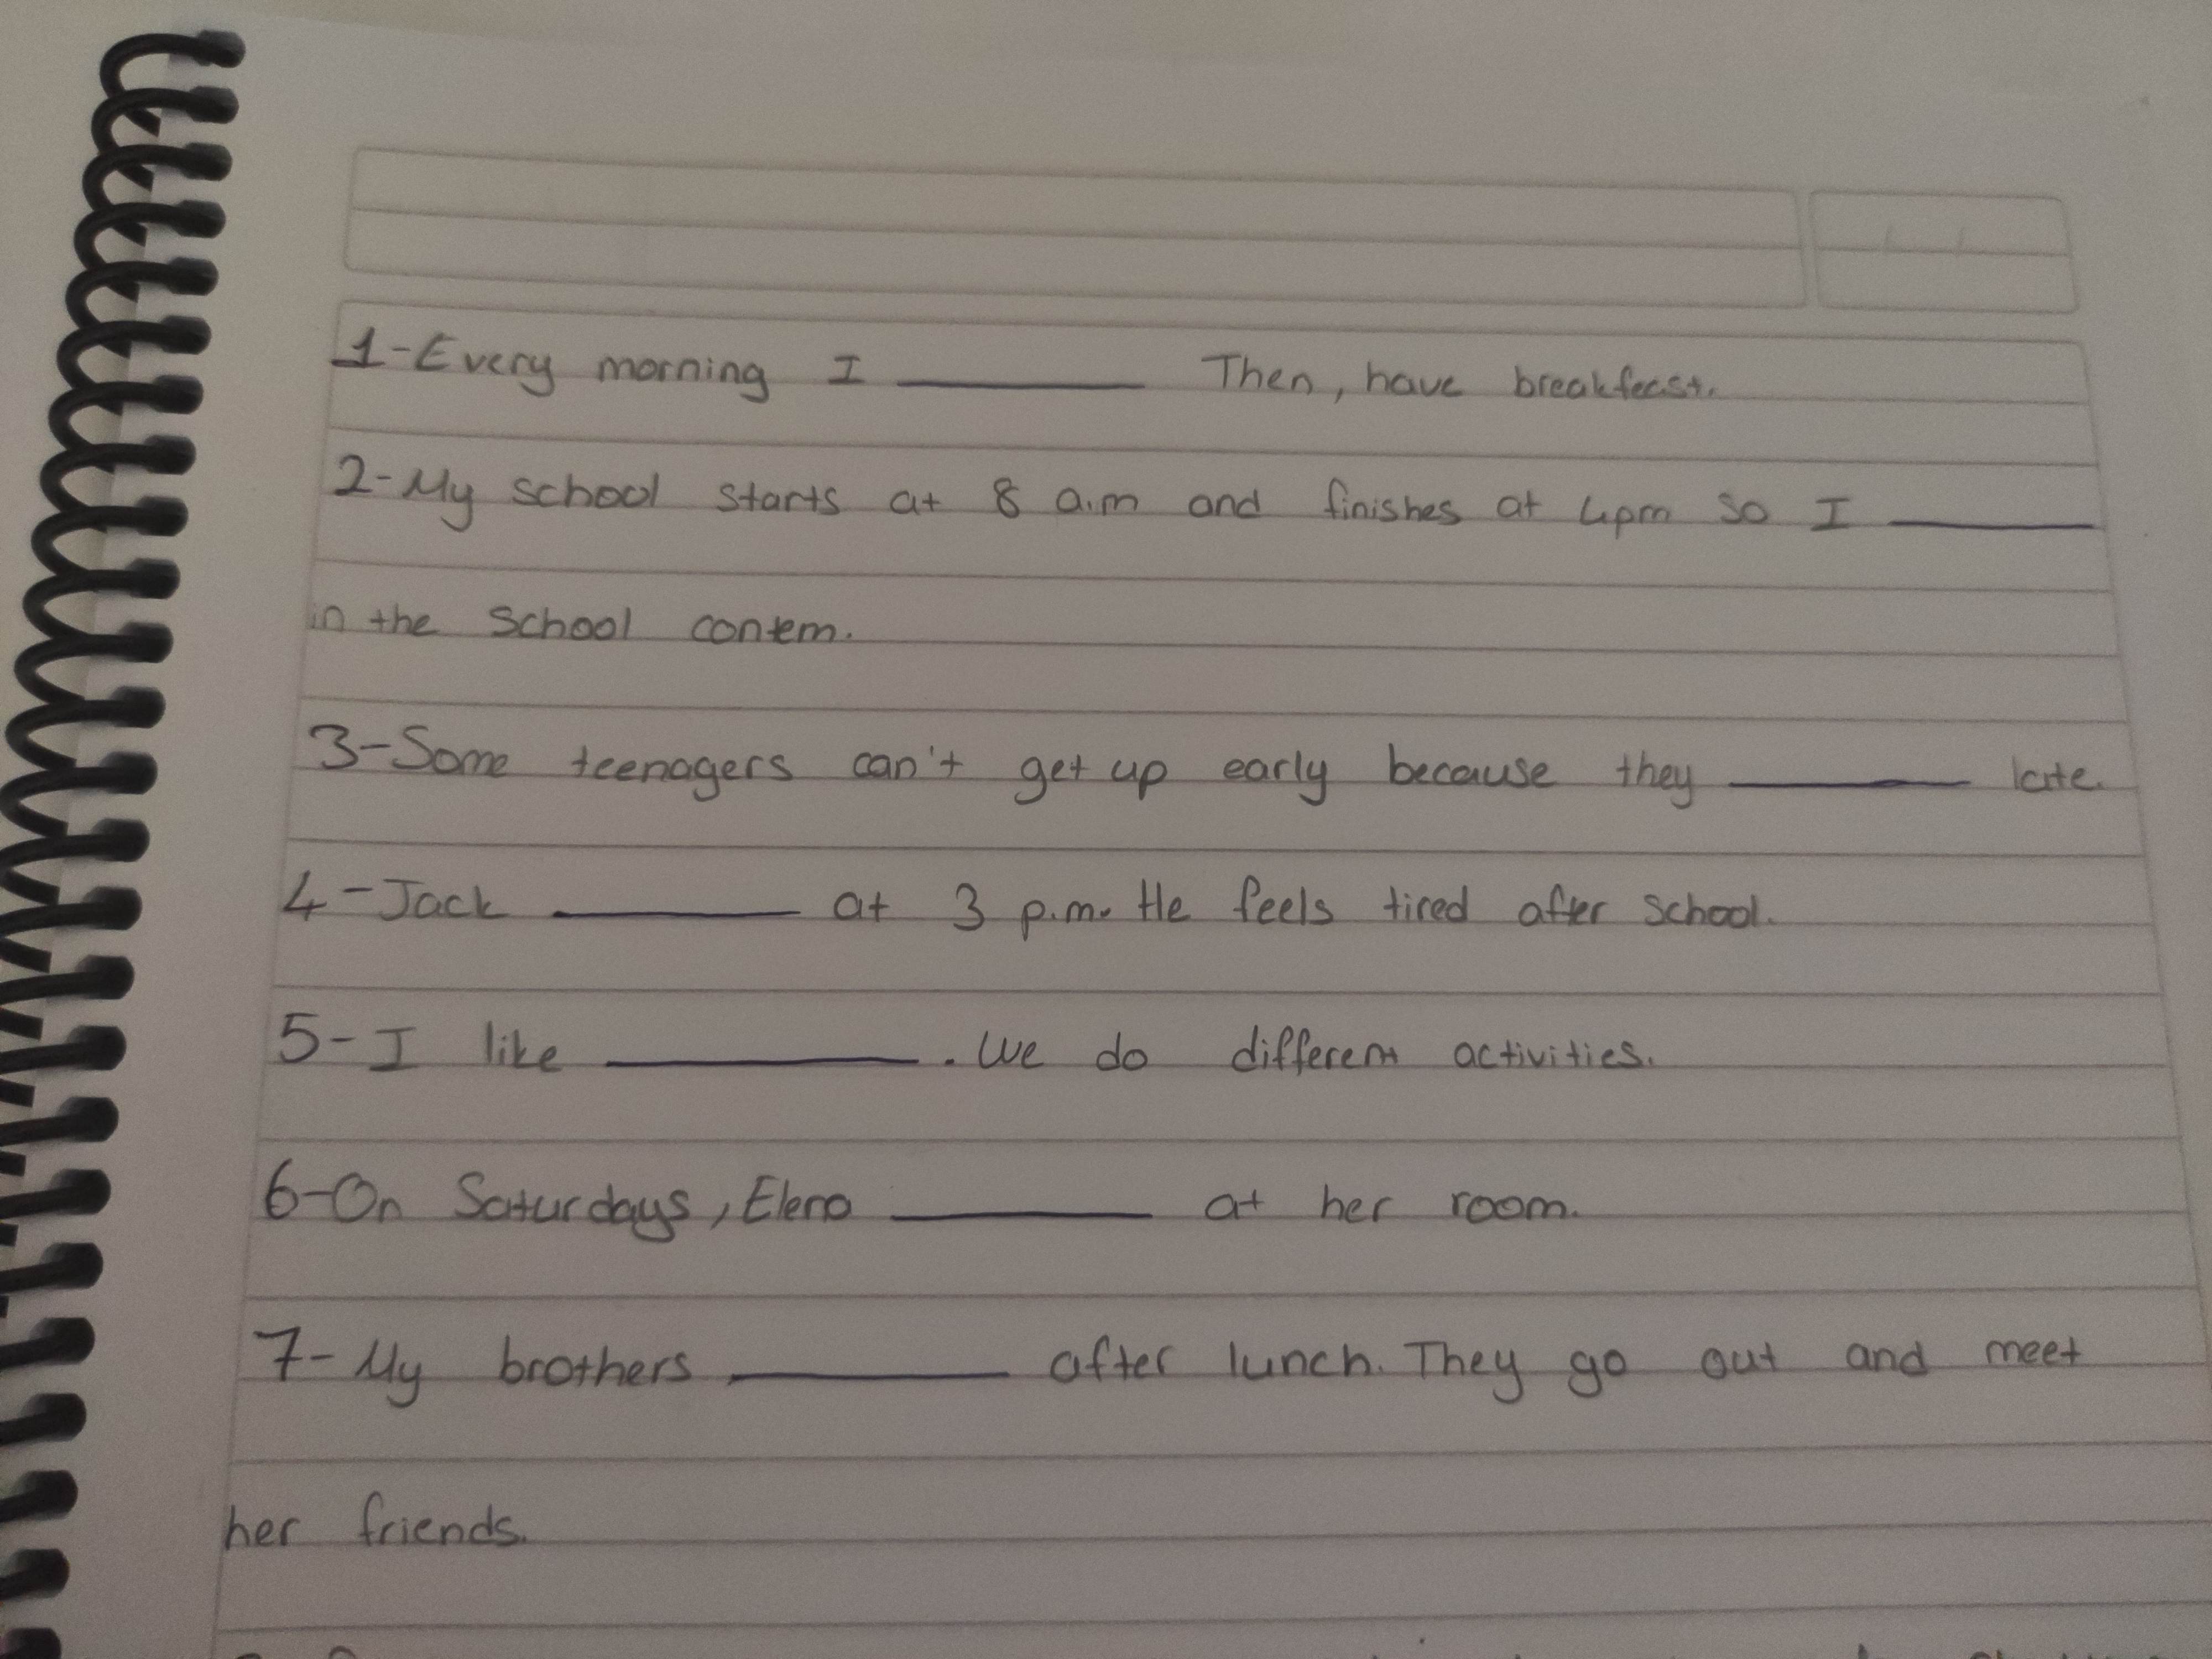 1-Every morning I ______ Then, have breakfast.
2-My school starts at 8 a.m and finishes at 4pm so I ______
in the school contem.
3-Some teenagers can't get up early because they ______ late.
4-Jack ______ at 3 p.m. He feels tired after school.
5-I like ______. We do different activities.
6-On Saturdays, Elena ______ at her room.
7-My brothers ______ after lunch. They go out and meet
her friends.